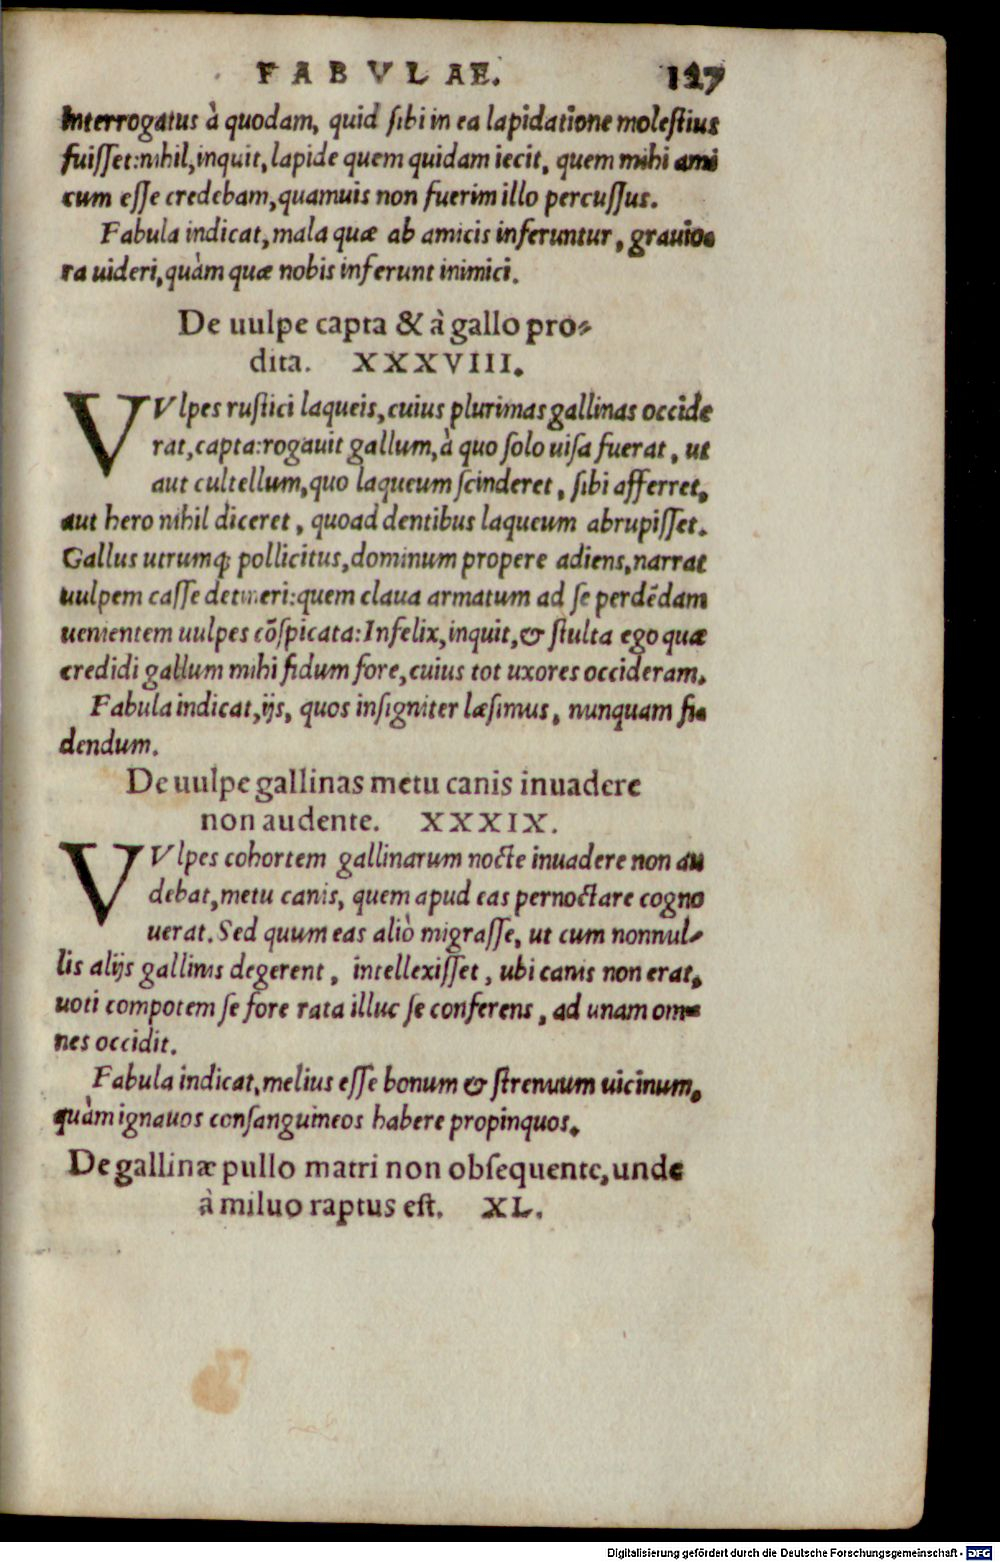 FABVLAE. 127
Interrogatus à quodam, quid ſibi in ea lapidatione moleſtius
fuiſſet:nihil,inquit,lapide quem quidam iecit, quem mihi ami
cum eſſe credebam,quamuis non fuerim illo percuſſus.
Fabula indicat,mala quæ ab amicis inferuntur, grauio-
ra uideri,quàm quæ nobis inferunt inimici.
De uulpe capta & à gallo pro-
dita. XXXVIII.
VVlpes ruſtici laqueis,cuius plurimas gallinas occide
rat,capta:rogauit gallum,à quo ſolo uiſa fuerat, ut
aut cultellum,quo laqueum ſcinderet, ſibi afferret,
aut hero nihil diceret, quoad dentibus laqueum abrupiſſet.
Gallus utrumq; pollicitus,dominum propere adiens,narrat
uulpem caſſe detineri:quem claua armatum ad ſe perdēdam
uenientem uulpes cōſpicata:Infelix,inquit,& ſtulta ego quæ
credidi gallum mihi fidum fore,cuius tot uxores occideram.
Fabula indicat,ijs, quos inſigniter læſimus, nunquam fi-
dendum.
De uulpe gallinas metu canis inuadere
non audente. XXXIX.
VVlpes cohortem gallinarum nocte inuadere non au
debat,metu canis, quem apud eas pernoctare cogno
uerat. Sed quum eas aliò migraſſe, ut cum nonnul-
lis alijs gallinis degerent, intellexiſſet, ubi canis non erat,
uoti compotem ſe fore rata illuc ſe conferens, ad unam om-
nes occidit.
Fabula indicat,melius eſſe bonum & ſtrenuum uicinum,
quàm ignauos conſanguineos habere propinquos.
De gallinæ pullo matri non obſequente,unde
à miluo raptus eſt. XL.
Digitalisierung gefördert durch die Deutsche Forschungsgemeinschaft - DFG